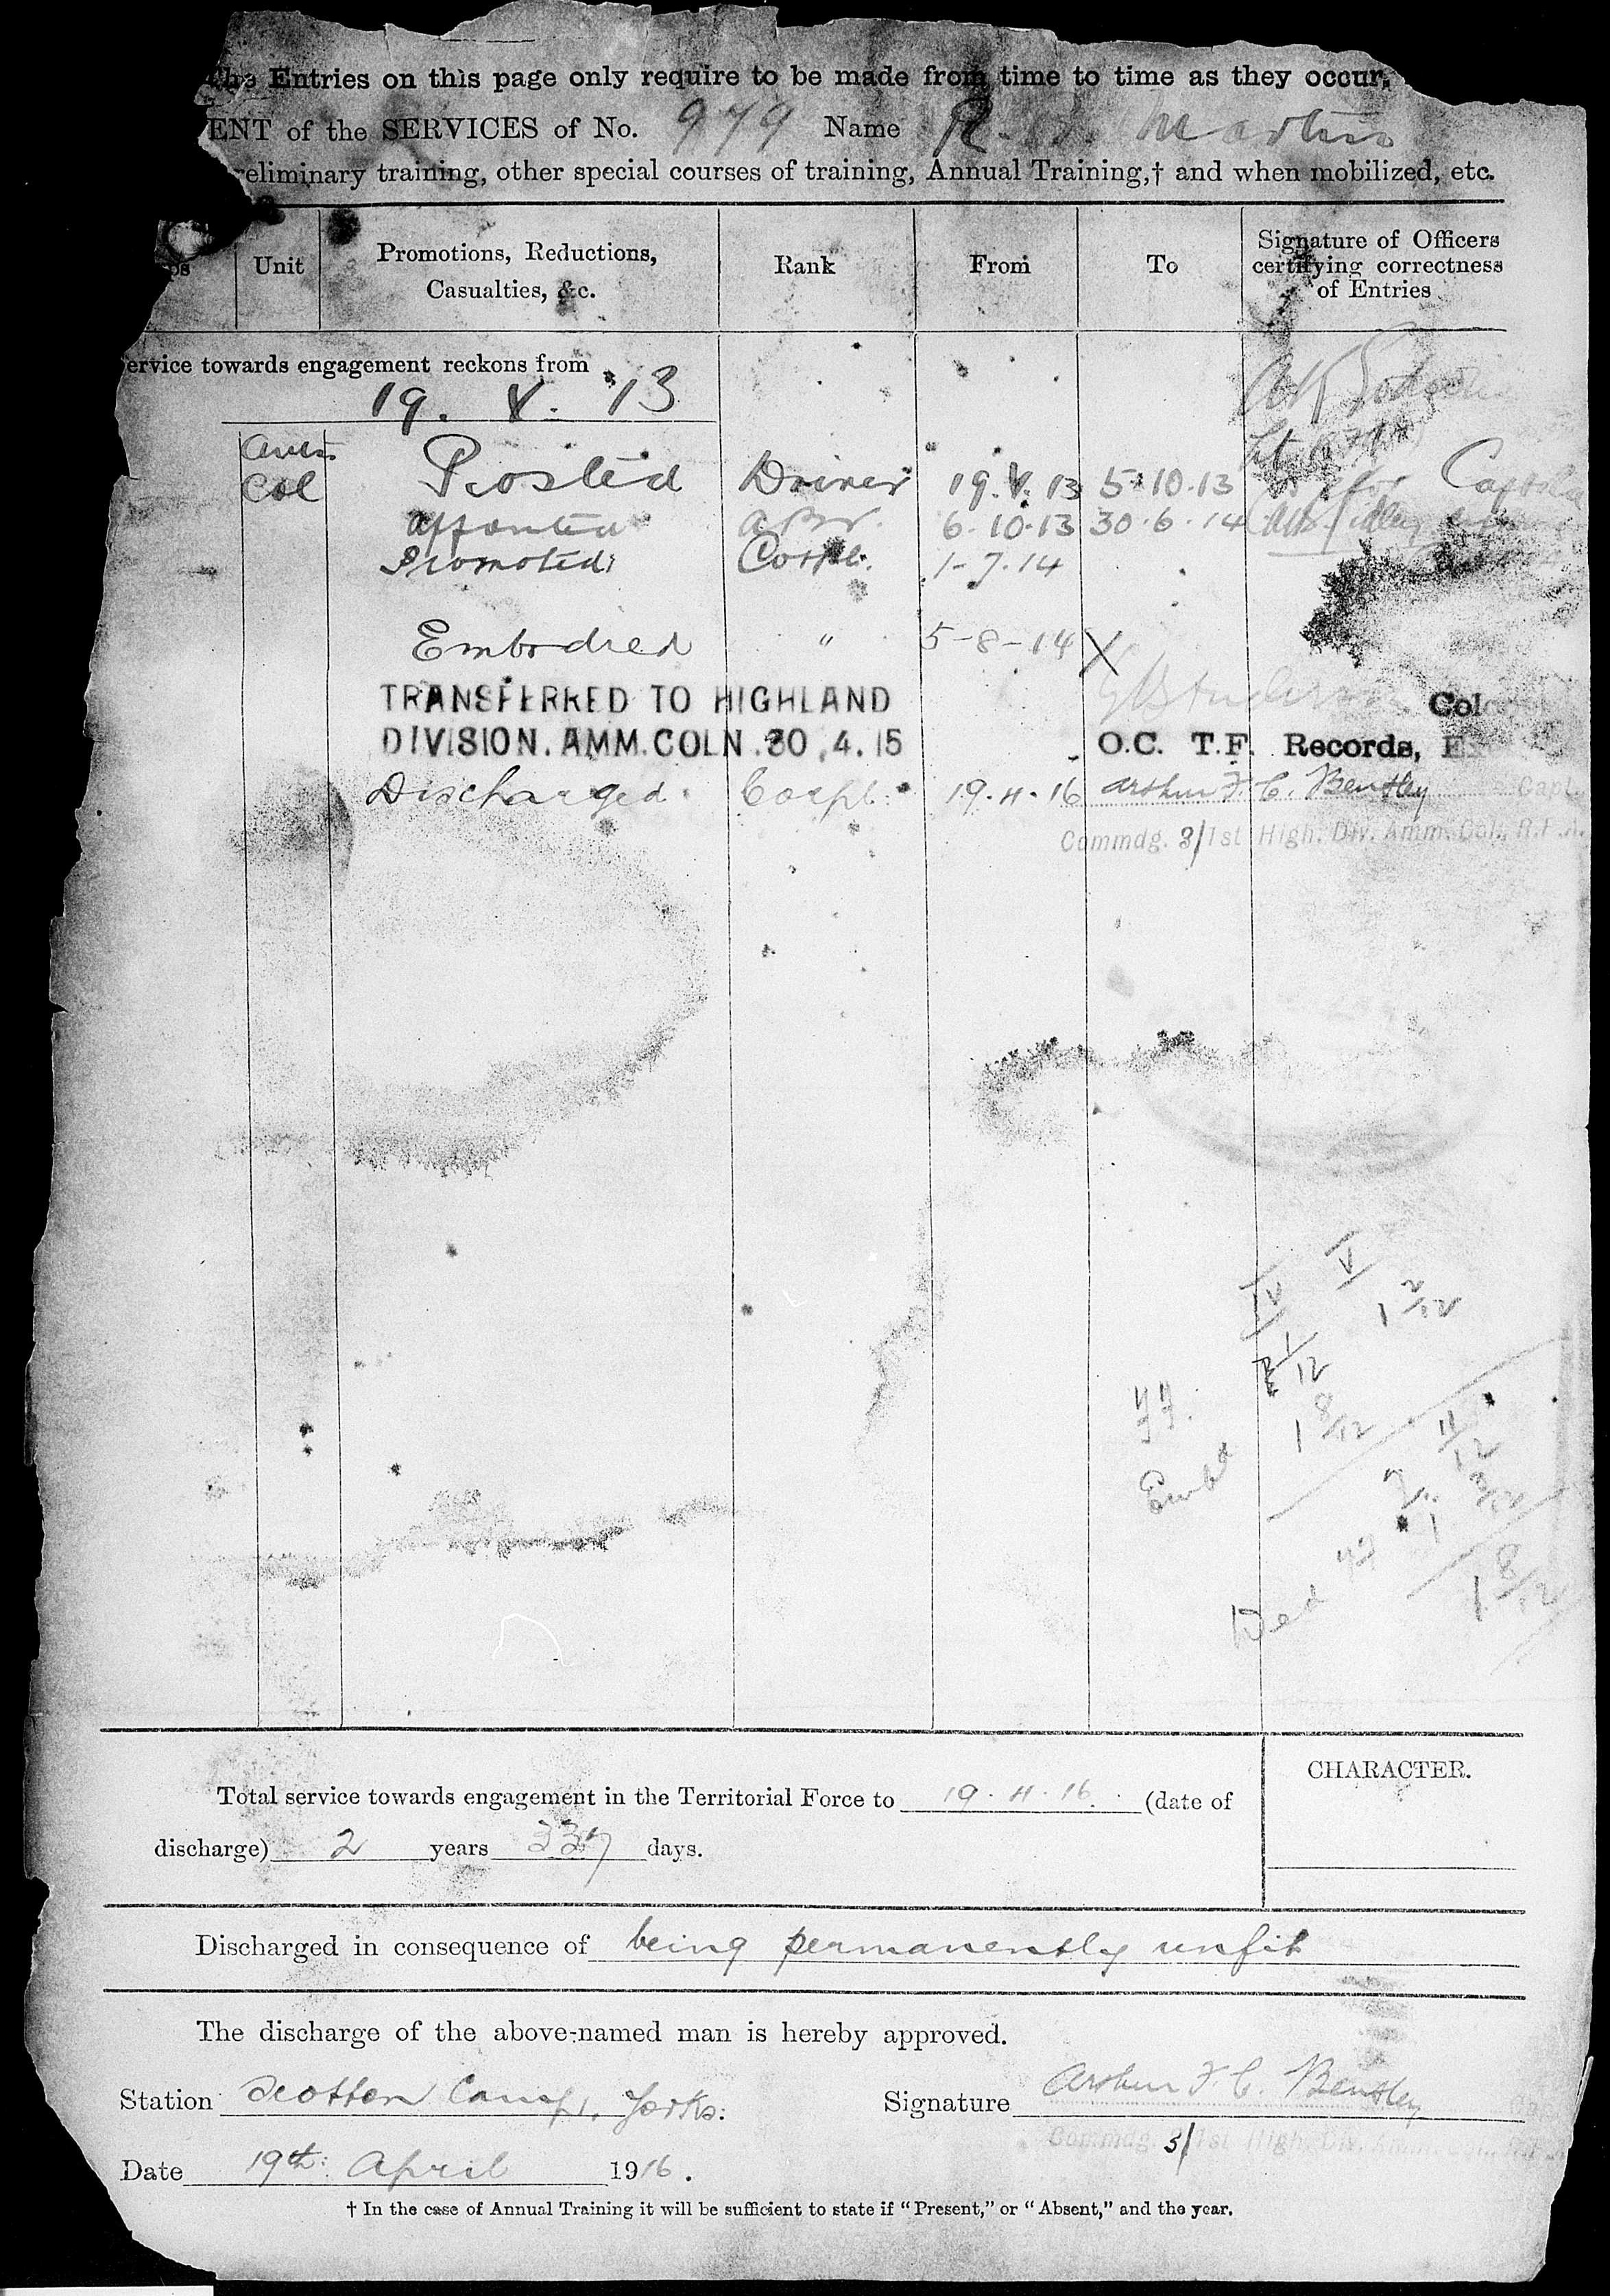 The Entries on this page only require to be made from time to time as they occur,
ENT of the SERVICES of No. 979 Name R. Martin
reliminary training, other special courses of training, Annual Training,† and when mobilized, etc.
Unit Promotions, Reductions, Casualties, &c. Rank From To Signature of Officers certifying correctness of Entries
ervice towards engagement reckons from
19. V. 13
Amm
Col Posted Driver 19. V. 13 5.10.13 for Capt
Appointed a Br. 6.10.13 30.6.14
Promoted Corpl. 1-7.14
Embodied " 5-8-14
TRANSFERRED TO HIGHLAND Col
DIVISION. AMM. COLN. 30.4.15 O.C. T.F. Records,
Discharged Corpl: 19.4.16 Arthur F. C. Bentley Capt.
Commdg. 3/1st High. Div. Amm. Col., R.F.A.
V
IV 1 2/12
1/12
1 8/12
11/12
Emb^d 2 3/12
1
1 8/12
CHARACTER.
Total service towards engagement in the Territorial Force to 19.4.16. (date of
discharge) 2 years 337 days.
Discharged in consequence of being permanently unfit
The discharge of the above-named man is hereby approved.
Station Scotton Camp, Yorks: Signature Arthur F C. Bentley
Commdg. 3/1st High. Div.
Date 19th: April 1916.
† In the case of Annual Training it will be sufficient to state if “Present,” or “Absent,” and the year.